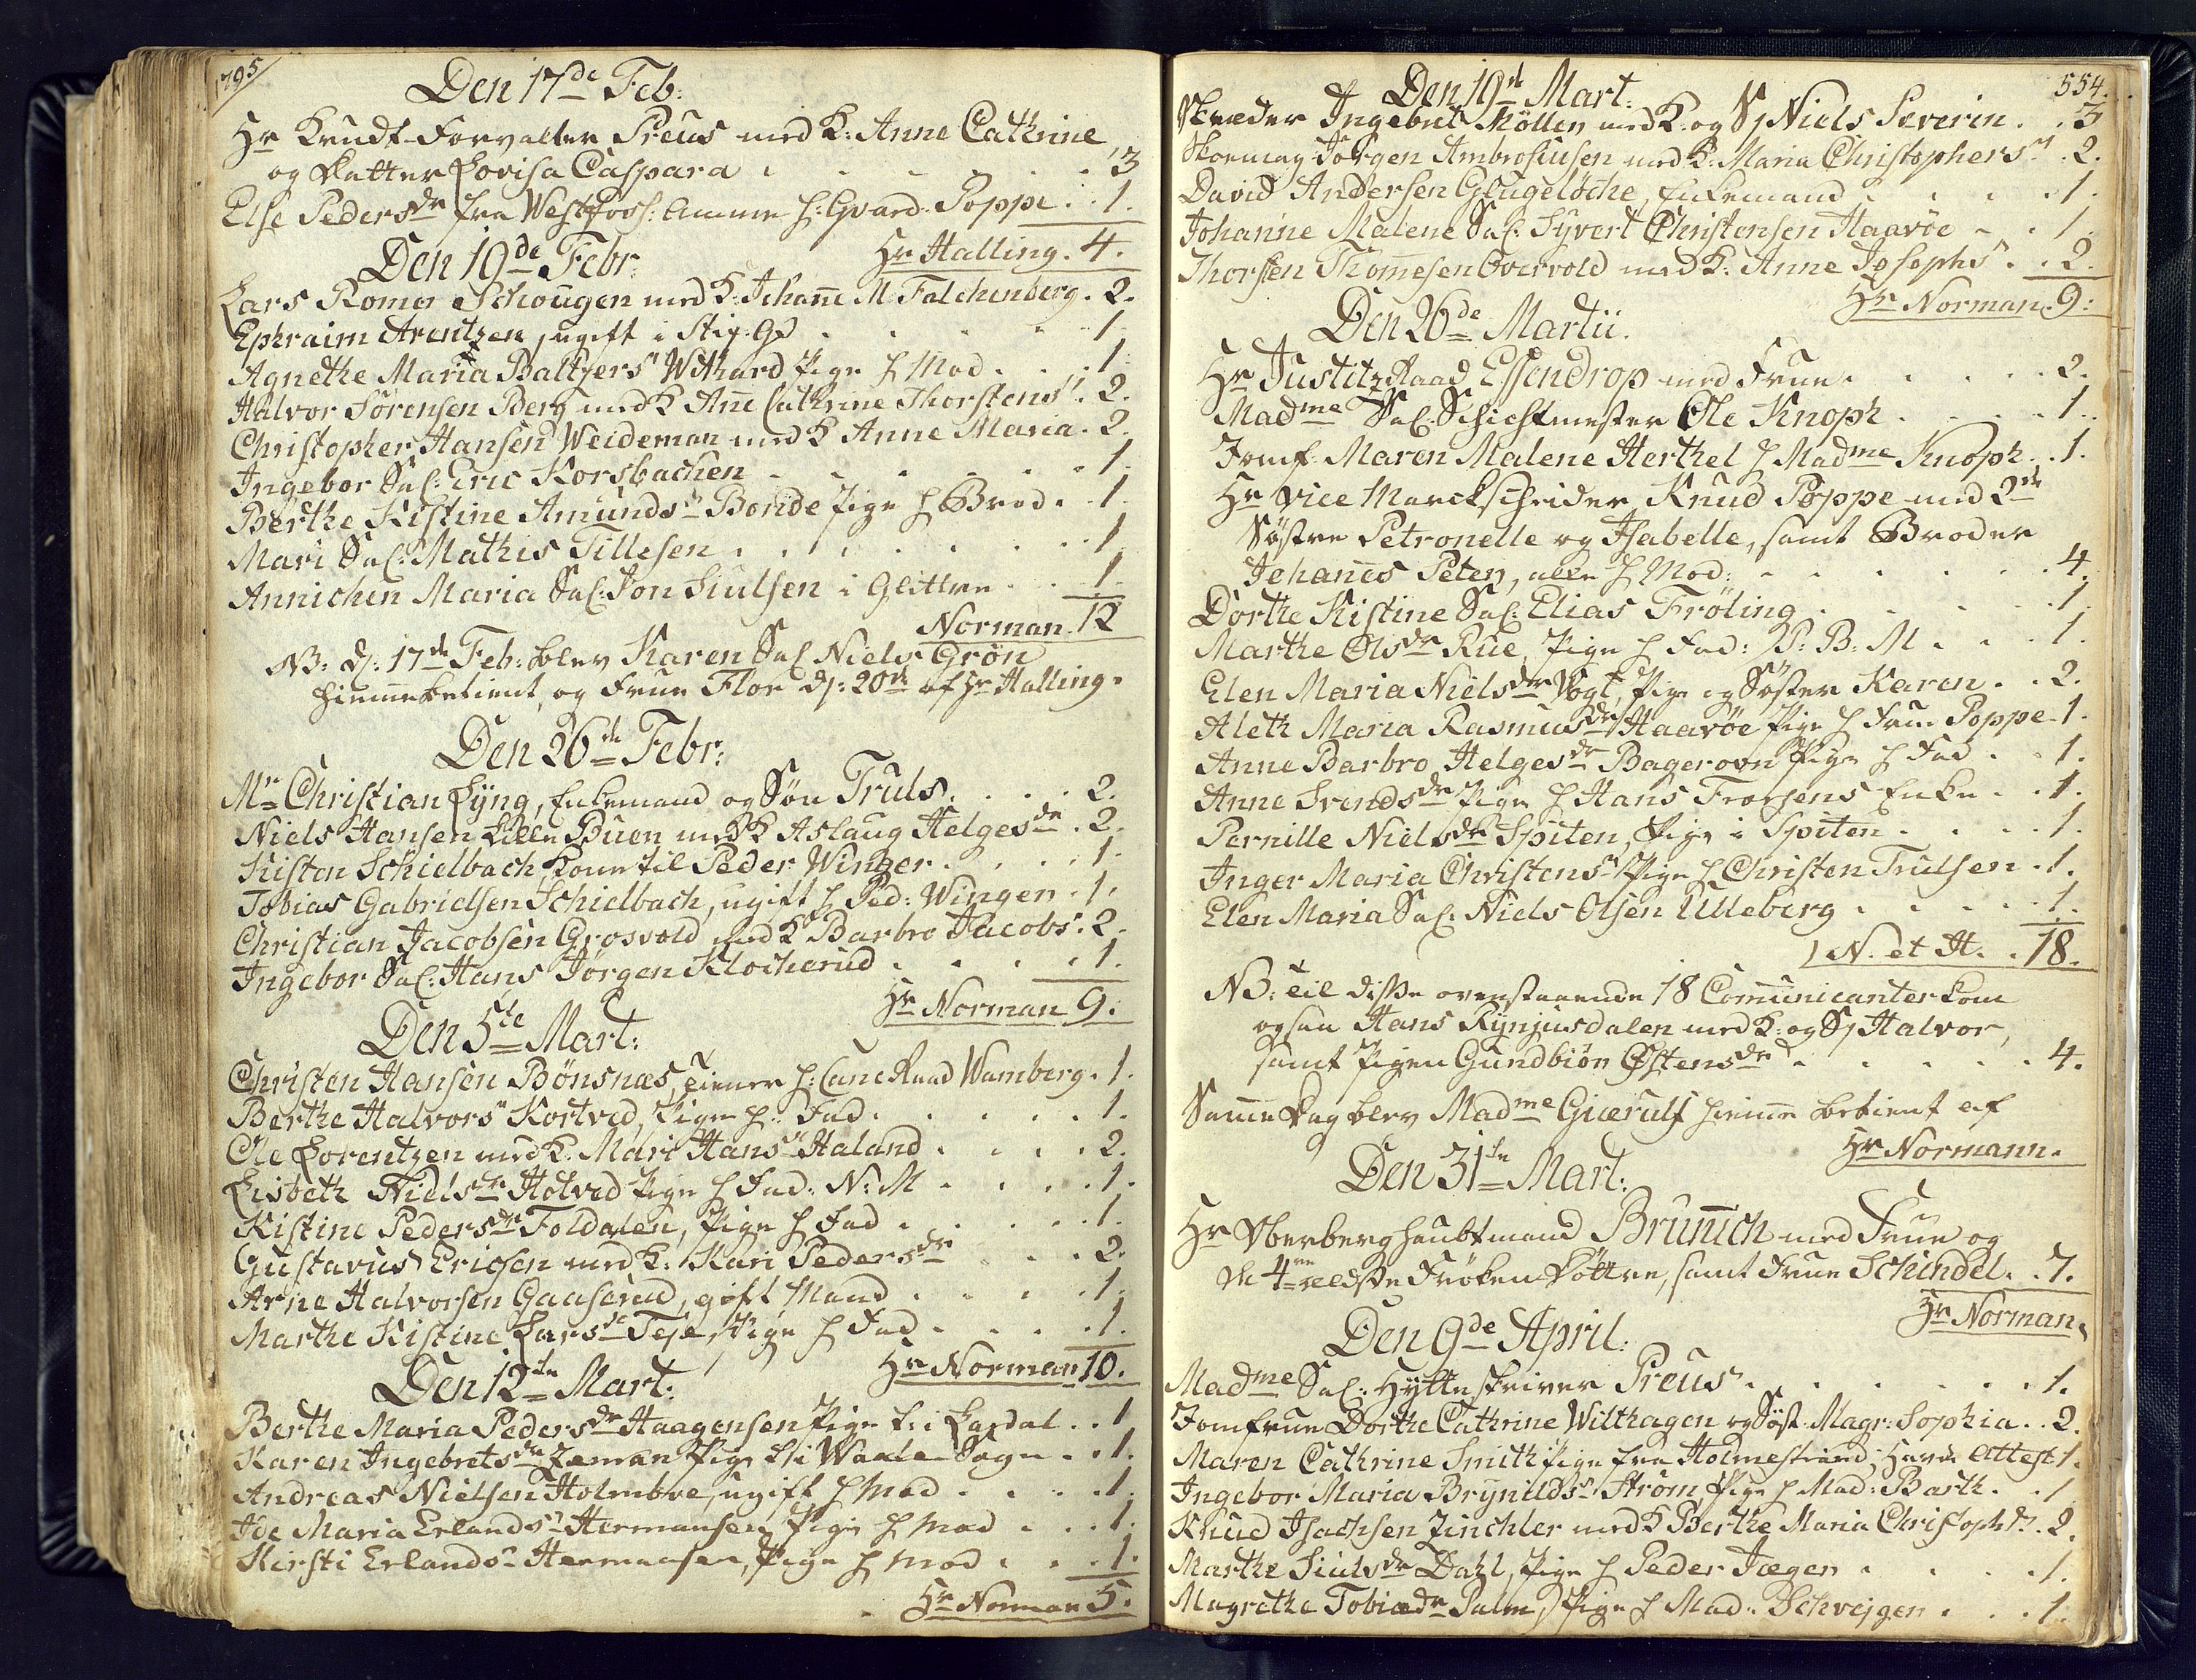 1795
Den 17de Feb:
Hr Krudt-Forvalter Preus med K: Anne Cathrine
og Datter Lovisa Caspara . . . . . 3
Else Pedersdr fra Westfoss: Amme h: Gvard. Poppe . . 1.
Hr Halling. 4.
Den 19de Febr:
Lars Romer Schougen med K: Johanne M: Falchenberg . 2.
Ephraim Arentzen, ugift i Stig: G . . . . 1
Agnethe Maria Baltzersdr Withard Pige h Mod . . . 1
Halvor Sørensen Berg med K Anne Cathrine Thorstensdr . 2.
Christopher Hansen Weideman med K Anne Maria . 2.
Ingebor Sal: Eric Korsbachen . . . . . 1.
Berthe Kistine Amundsdr Bonde Pige h Brod . . 1.
Mari Sal: Mathis Tillesen . . . . . 1
Annichen Maria Sal: Jon Siulsen i Glittre . . 1.
Norman. 12
NB: d: 17de Feb: blev Karen Sal Niels Grøn
hiemmebetient, og Frue Flor d: 20de af Hr Halling.
Den 26de Febr:
Mr Christian Lyng, Enkemand og Søn Truls . . . . 2.
Niels Hansen Lille Buen med K Aslaug Helgesdr . 2.
Kisten Schielbach Kone til Peder Winger . . . . 1.
Tobias Gabrielsen Schielbach, ugift h Ped: Winger . 1.
Christian Jacobsen Grosvold med K Barbro Jacobsdr . 2.
Ingebor Sal: Hans Jørgen Klocherud . . . . 1.
Hr Norman 9:
Den 5te Mart:
Christen Hansen Bønsnæs, tiener h: Canc Raad Wamberg . 1.
Berthe Halvorsdr Kortved, Pige h: Fad . . . . . 1.
Ole Lorentzen med K. Mari Hansdr Haland . . . . 2.
Lisbeth Nielsdr Holved Pige h Fad: N: M . . . . 1.
Kistine Pedersdr Foldalen, Pige h Fad . . . . . 1.
Gustavus Ericsen med K: Kari Pedersdr . . . 2.
Arne Halvorsen Gaaserud, gift Mand . . . . 1.
Marthe Kistine Larsdr Teje, Pige h Fad . . . . 1.
Hr Norman 10.
Den 12te Mart:
Berthe Maria Pedersdr Haagensen Pige t: i Lardal . . 1
Karen Ingebretsdr Zeman Pige t: i Waale Sogn . . 1.
Andreas Nielsen Holmboe, ugift h Mod . . . . 1.
Ide Maria Erlandsdr Hermansen Pige h Mod . . . 1.
Kirsti Erlandsdr Hermansen, Pige h Mod . . . 1.
Hr Norman 5.
554.
Den 19de Mart:
Skræder Ingebret Møller med K: og S Niels Severin . . 3
Skoemag Jørgen Ambrosiusen med K: Maria Christophersdr . 2.
David Andersen Glugeløche, Enkemand . . . . 1.
Johanne Malene Sal: Syvert Christensen Haavøe . . 1.
Thorsten Thommesen Overvold med K: Anne Josephsdr . . 2.
Hr Norman. 9:
Den 26de Martii.
Hr Justitz Raad Essendrop med Frue . . . . . 2.
Madme Sal: Schichtmester Ole Knoph . . . . 1.
Jomf: Maren Malene Herthel h Madme Knoph . . 1.
Hr Vice Marckscheider Knud Poppe med 2de
Søstre Petronelle og Isabelle, samt Broder
Johannes Peter, alle h Mod: . . . . . 4.
Dorthe Kistine Sal: Elias Frøling . . . . . 1.
Marthe Olsdr Rue, Pige h Fad: P: B: M . . . 1.
Elen Maria Nielsdr Vogt, Pige og Søster Karen . . 2.
Aleth Maria Rasmusdr Haavøe Pige h Frue Poppe . 1.
Anne Barbro Helgesdr Bagerovn Pige h Fad . . 1.
Anne Svendsdr Pige h Hans Frorsens Enke . . 1.
Pernille Nielsdr Spiten, Pige i Spiten . . . . 1.
Inger Maria Christensdr Pige h Christen Trulsen . 1.
Elen Maria Sal: Niels Olsen Ulleberg . . . . 1.
N. et H. . 18.
NB: til disse ovenstaaende 18 Communicanter kom
ogsaa Hans Rynjusdalen med K: og S Halvor,
samt Pigen Gundbiør Østensdr . . . . . . 4.
Samme Dag blev Madme Giærulf hiemme betient af
Hr Normann.
Den 31te Mart:
Hr Oberberghaubtmand Brunnich med Frue og
de 4re ældste Frøken Døttre, samt Frue Schindel . . 7.
Hr Norman.
Den 9de April:
Madme Sal: Hytteskriver Preus . . . . . . . 1.
Jomfrue Dorthe Cathrine Wilthagen og Søst: Magr: Sophia . . 2.
Maren Cathrine Smith Pige fra Holmestrand; Havde Attest 1.
Ingebor Maria Brynildsdr Strøm Pige h Mad: Barth . . 1
Knud Isachsen Zinchler med K Berthe Maria Christophdr . 2.
Marthe Siulsdr Dahl, Pige h Peder Jæger . . . . 1.
Magrethe Tobiædr Palm, Pige h Mad: Schrejger . . . 1.